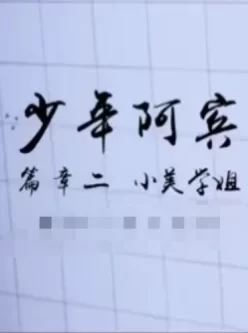 少年阿宾
篇章二 小美学姐